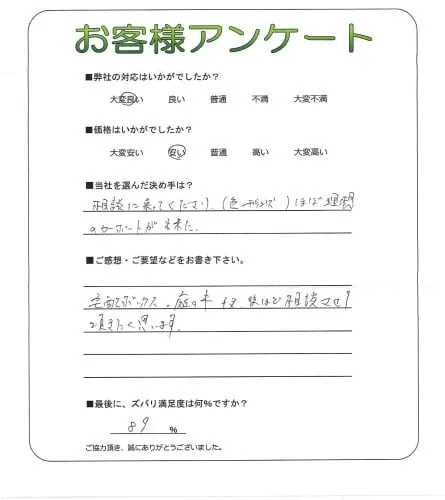 お客様アンケート
■弊社の対応はいかがでしたか?
大変良い 良い 普通 不満 大変不満
■価格はいかがでしたか?
大変安い 安い 普通 高い 大変高い
■当社を選んだ決め手は?
相談に乗ってくださり、(色 ) ほぼ理想
のカーポートが出来た。
■ご感想・ご要望などをお書き下さい。
宅配ボックス、庭の木 も 後ほど相談させて
頂きたく思います。
■最後に、ズバリ満足度は何%ですか?
89 %
ご協力頂き、誠にありがとうございました。